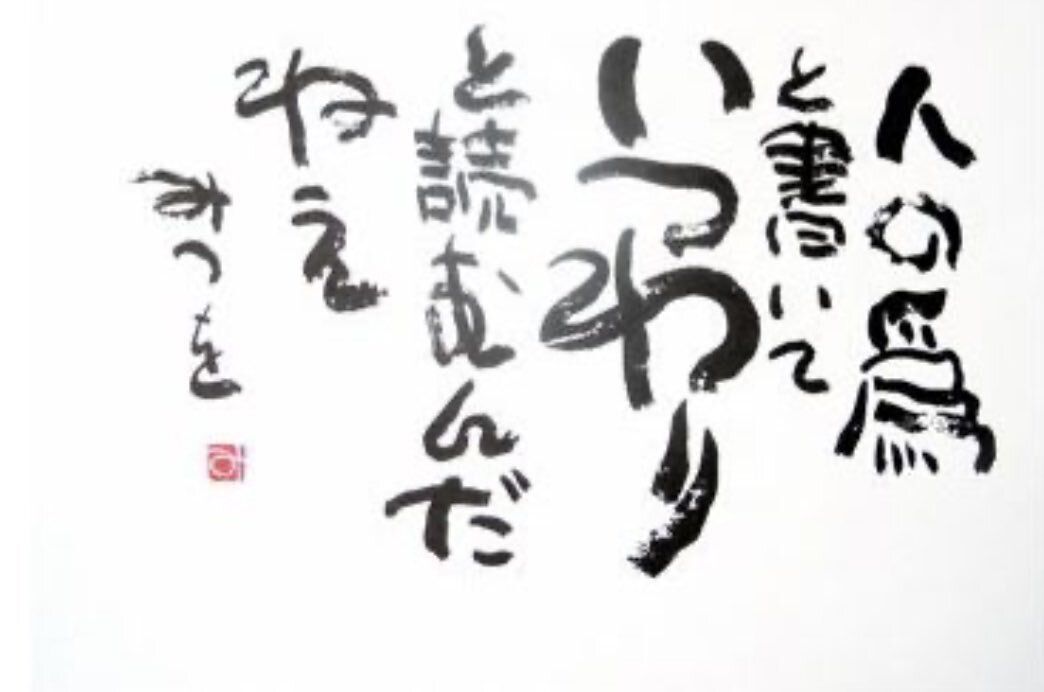 人の爲
と書いて
いつわり
と読むんだ
ねえ
みつを
み